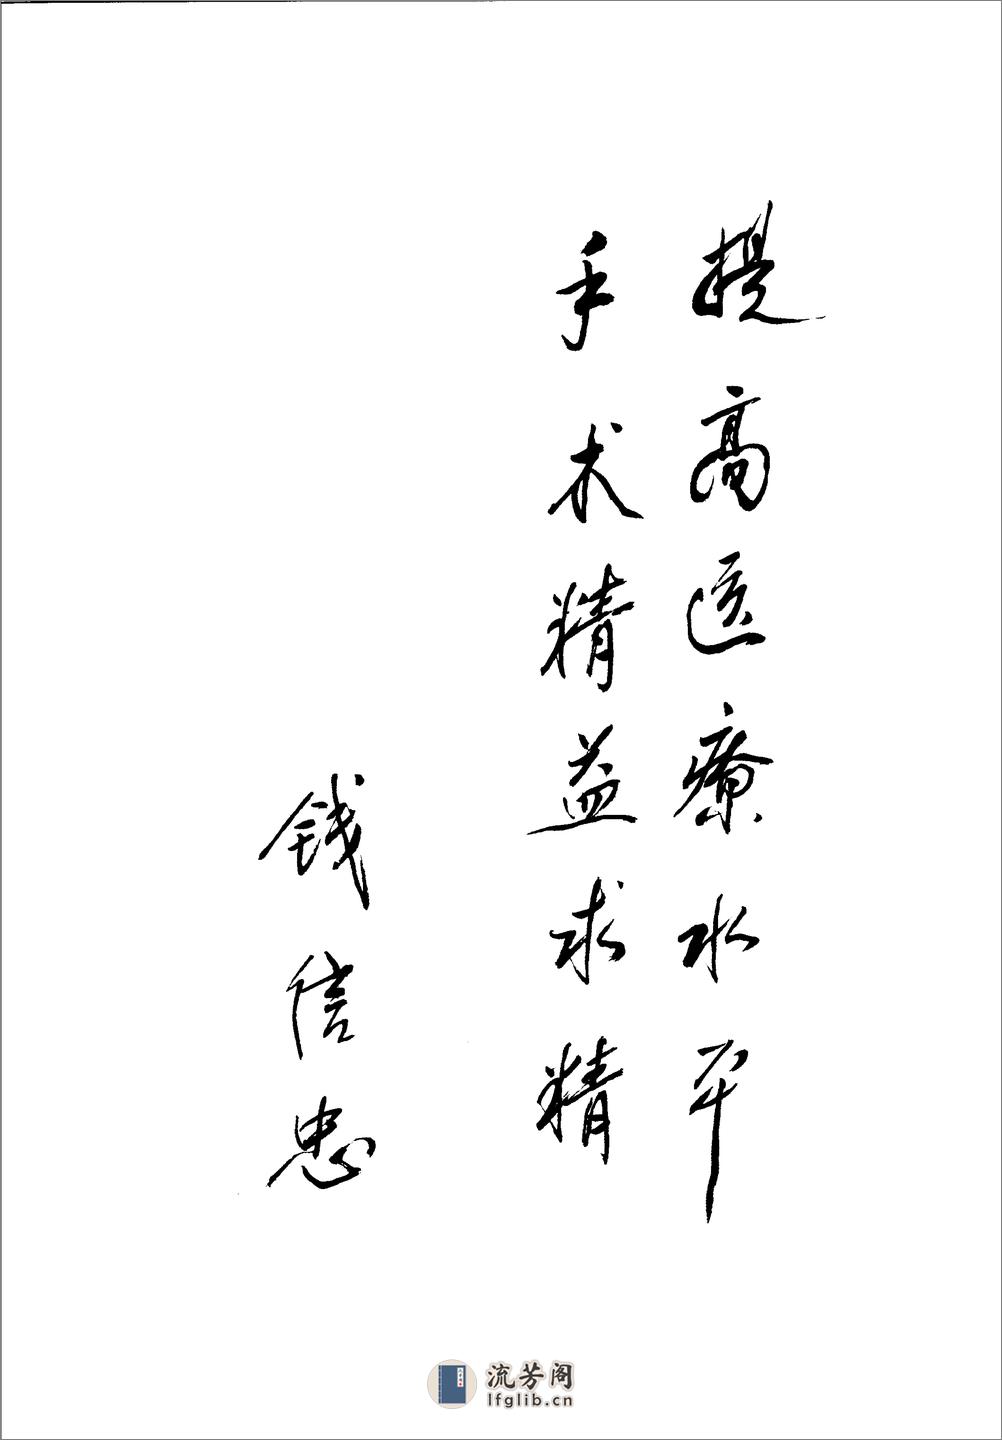 提高医療水平
手术精益求精
钱信忠
流芳阁
lfglib.cn